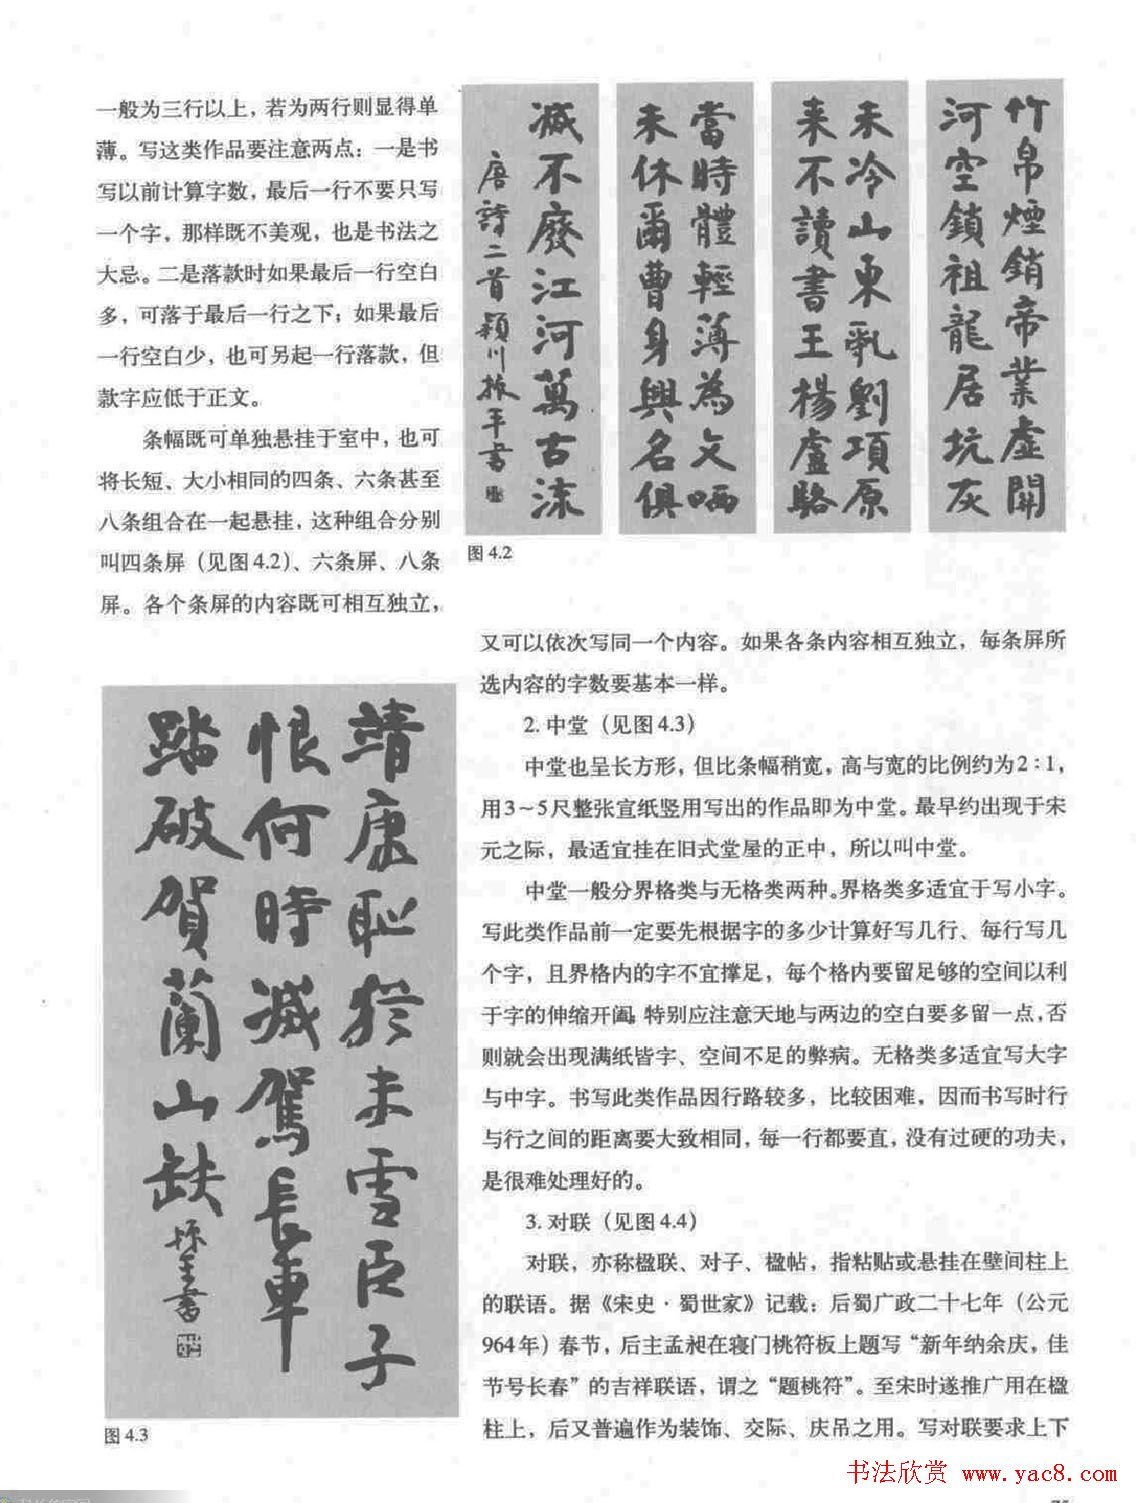 一般为三行以上，若为两行则显得单
薄。写这类作品要注意两点：一是书
写以前计算字数，最后一行不要只写
一个字，那样既不美观，也是书法之
大忌。二是落款时如果最后一行空白
多，可落于最后一行之下；如果最后
一行空白少，也可另起一行落款，但
款字应低于正文。
条幅既可单独悬挂于室中，也可
将长短、大小相同的四条、六条甚至
八条组合在一起悬挂，这种组合分别
叫四条屏（见图4.2）、六条屏、八条
屏。各个条屏的内容既可相互独立，
竹帛煙銷帝業虛關
河空鎖祖龍居坑灰
未冷山東亂劉項原
来不讀書王楊盧駱
當時體輕薄為文哂
未休爾曹身與名俱
滅不廢江河萬古流
唐詩二首穎川振平書
图4.2
又可以依次写同一个内容。如果各条内容相互独立，每条屏所
选内容的字数要基本一样。
2. 中堂（见图4.3）
中堂也呈长方形，但比条幅稍宽，高与宽的比例约为2：1，
用3～5尺整张宣纸竖用写出的作品即为中堂。最早约出现于宋
元之际，最适宜挂在旧式堂屋的正中，所以叫中堂。
中堂一般分界格类与无格类两种。界格类多适宜于写小字。
写此类作品前一定要先根据字的多少计算好写几行、每行写几
个字，且界格内的字不宜撑足，每个格内要留足够的空间以利
于字的伸缩开阖，特别应注意天地与两边的空白要多留一点，否
则就会出现满纸皆字、空间不足的弊病。无格类多适宜写大字
与中字。书写此类作品因行路较多，比较困难，因而书写时行
与行之间的距离要大致相同，每一行都要直，没有过硬的功夫，
是很难处理好的。
3. 对联（见图4.4）
对联，亦称楹联、对子、楹帖，指粘贴或悬挂在壁间柱上
的联语。据《宋史·蜀世家》记载：后蜀广政二十七年（公元
964年）春节，后主孟昶在寝门桃符板上题写“新年纳余庆，佳
节号长春”的吉祥联语，谓之“题桃符”。至宋时遂推广用在楹
柱上，后又普遍作为装饰、交际、庆吊之用。写对联要求上下
靖康恥猶未雪臣子
恨何時滅駕長車
踏破賀蘭山缺
振平書
图4.3
书法欣赏 www.yac8.com